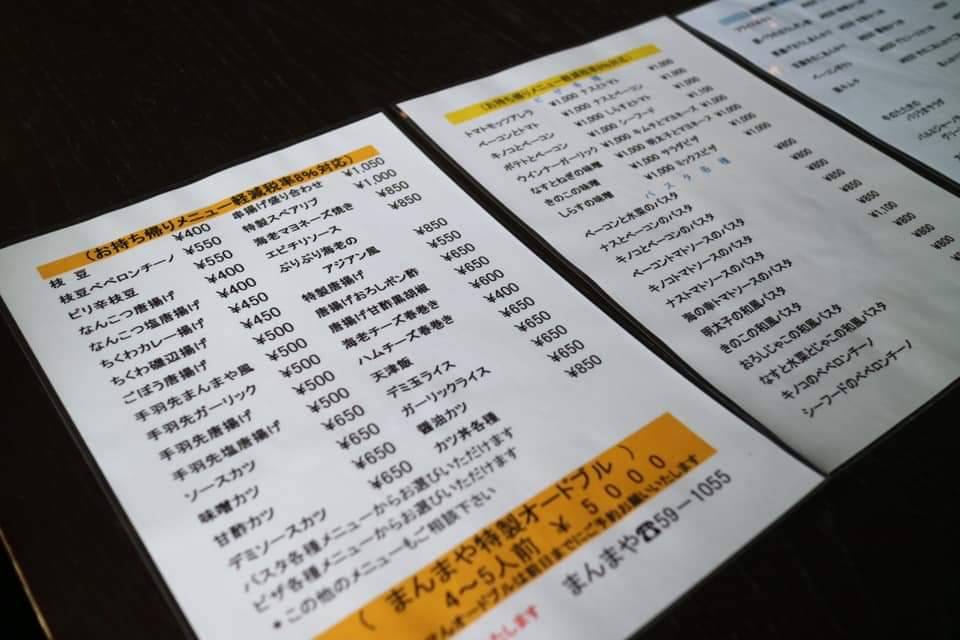 (お持ち帰りメニュー軽減税率8%対応)
枝 豆
枝豆ペペロンチーノ
ピリ辛枝豆
なんこつ唐揚げ
なんこつ塩唐揚げ
ちくわカレー揚げ
ちくわ磯辺揚げ
ごぼう唐揚げ
手羽先まんまや風
手羽先ガーリック
手羽先唐揚げ
手羽先塩唐揚げ
ソースカツ
味噌カツ
甘酢カツ
デミソースカツ
¥400
¥550
¥550
¥400
¥450
¥450
¥500
¥500
¥500
¥500
¥650
¥650
¥650
¥650
串揚げ盛り合わせ
特製スペアリブ
海老マヨネーズ焼き
エビチリソース
ぷりぷり海老の
アジアン風
特製唐揚げ
唐揚げおろしポン酢
唐揚げ甘酢黒胡椒
海老チーズ春巻き
ハムチーズ春巻き
天津飯
デミ玉ライス
ガーリックライス
醤油カツ
カツ丼各種
¥1,050
¥1,000
¥850
¥850
¥850
¥550
¥650
¥650
¥600
¥400
¥650
¥650
¥650
¥850
パスタ各種メニューからお選びいただけます
ピザ各種メニューからお選びいただけます
*この他のメニューもご相談下さい
( まんまや特製オードブル )
4〜5人前 ¥5000
オードブルは前日までにご予約お願いいたします
まんまや☎59-1055
(お持ち帰りメニュー軽減税率8%対応)
ピザ各種
トマトモッツアレラ
ベーコンとトマト
キノコとベーコン
ポテトとベーコン
ウインナーガーリック
なすとねぎの味噌
きのこの味噌
しらすの味噌
¥1,000
¥1,000
¥1,000
¥1,000
¥1,000
¥1,000
¥1,000
ナスとトマト
ナスとベーコン
しらすとトマト
シーフード
キムチとマヨネーズ
明太子とマヨネーズ
サラダピザ
ミックスピザ
¥1,000
¥1,000
¥1,100
¥1,000
¥1,000
¥1,000
¥1,000
パスタ各種
ベーコンと水菜のパスタ
ナスとベーコンのパスタ
キノコとベーコンのパスタ
ベーコントマトソースのパスタ
キノコトマトソースのパスタ
ナストマトソースのパスタ
海の幸トマトソースのパスタ
明太子の和風パスタ
きのこの和風パスタ
おろしじゃこの和風パスタ
なすと水菜とじゃこのパスタ
キノコのペペロンチーノ
シーフードのペペロンチーノ
¥800
¥850
¥850
¥850
¥850
¥1,100
¥800
¥800
ベーコンポテト